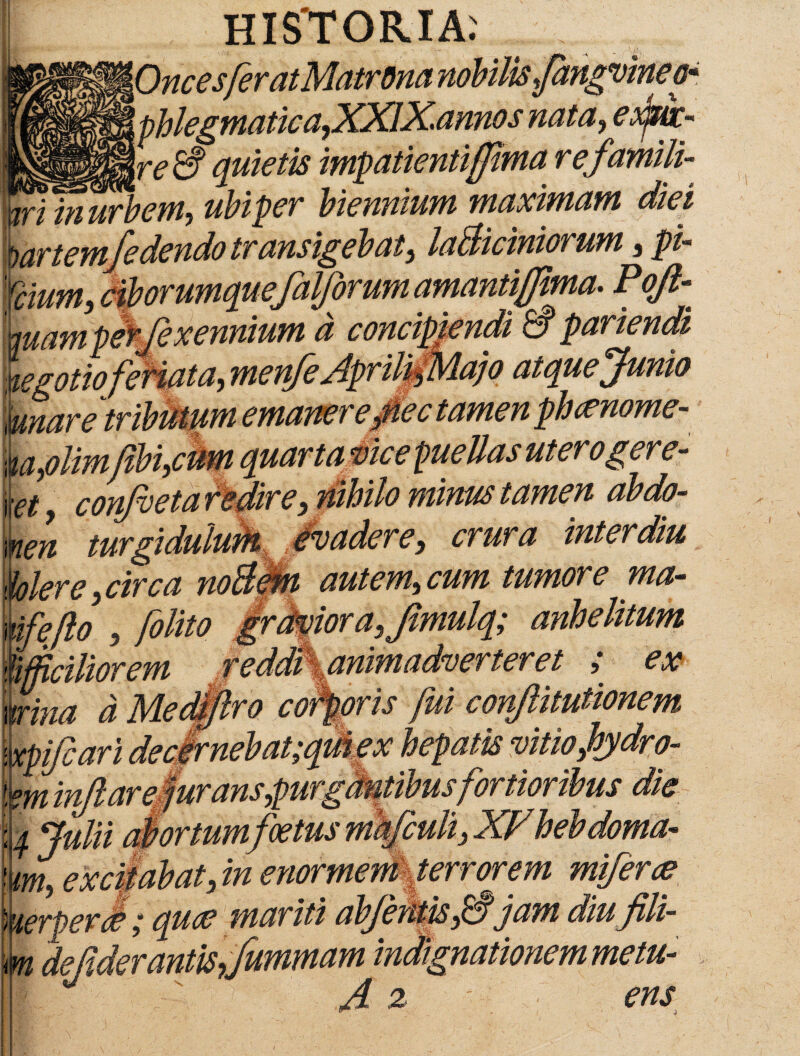 HISTORIA:
COncesserat Matrona nobilis, sangvineo-
phlegmatica, XXIX. annos nata, ex
re & quietis impatientissima re famili-
ari in urbem, ubi per biennium maximam diei
partem sedendo transigebat, lacticiniorum, pi-
scium, ciborumque salsorum amantissima. Post-
quam per sexennium à concipiendi & pariendi
negotio feriata, mense Aprili, Majo atque Junio
lunare tributum emanere, nec tamen phænome-
na, olim sibi, cùm quarta vice puellas utero gere-
ret, consveta redire, nihilo minus tamen abdo-
men turgidulum evadere, crura interdiu
dolere, circa noctem autem, cum tumore ma-
nifesto, solito graviora, simulq; anhelitum
difficiliorem reddi animadverteret; ex
urina à Medistro corporis sui constitutionem
expiscari decernebat; qui ex hepatis vitio, hydro-
pem instare jurans, purgantibus fortioribus die
14 Julii abortum foetus masculi, XV hebdoma-
um, excitabat, in enormem terrorem miseræ
puerperæ; quæ mariti absentis, & jam diu fili-
um desiderantis, summam indignationem metu-
A 2 ens